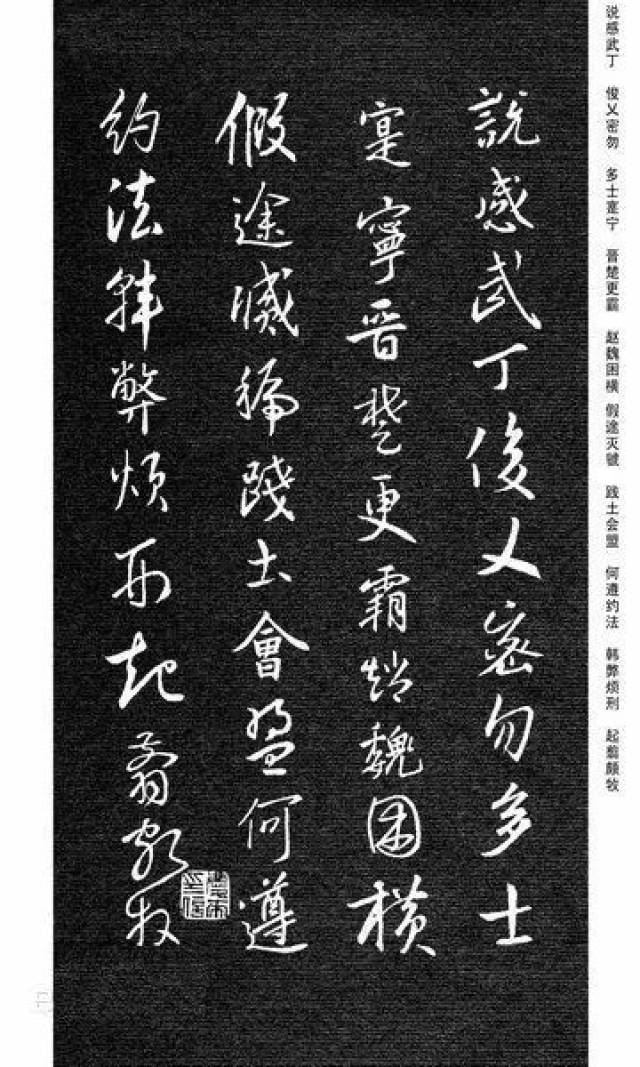 说感武丁 俊乂密勿 多士寔宁 晋楚更霸 赵魏困横 假途灭虢 践土会盟 何遵约法 韩弊烦刑 起翦颇牧
説感武丁俊乂密勿多士
寔寧晉楚更霸趙魏困橫
假途滅虢踐土會盟何遵
約法韓弊煩刑起翦頗牧